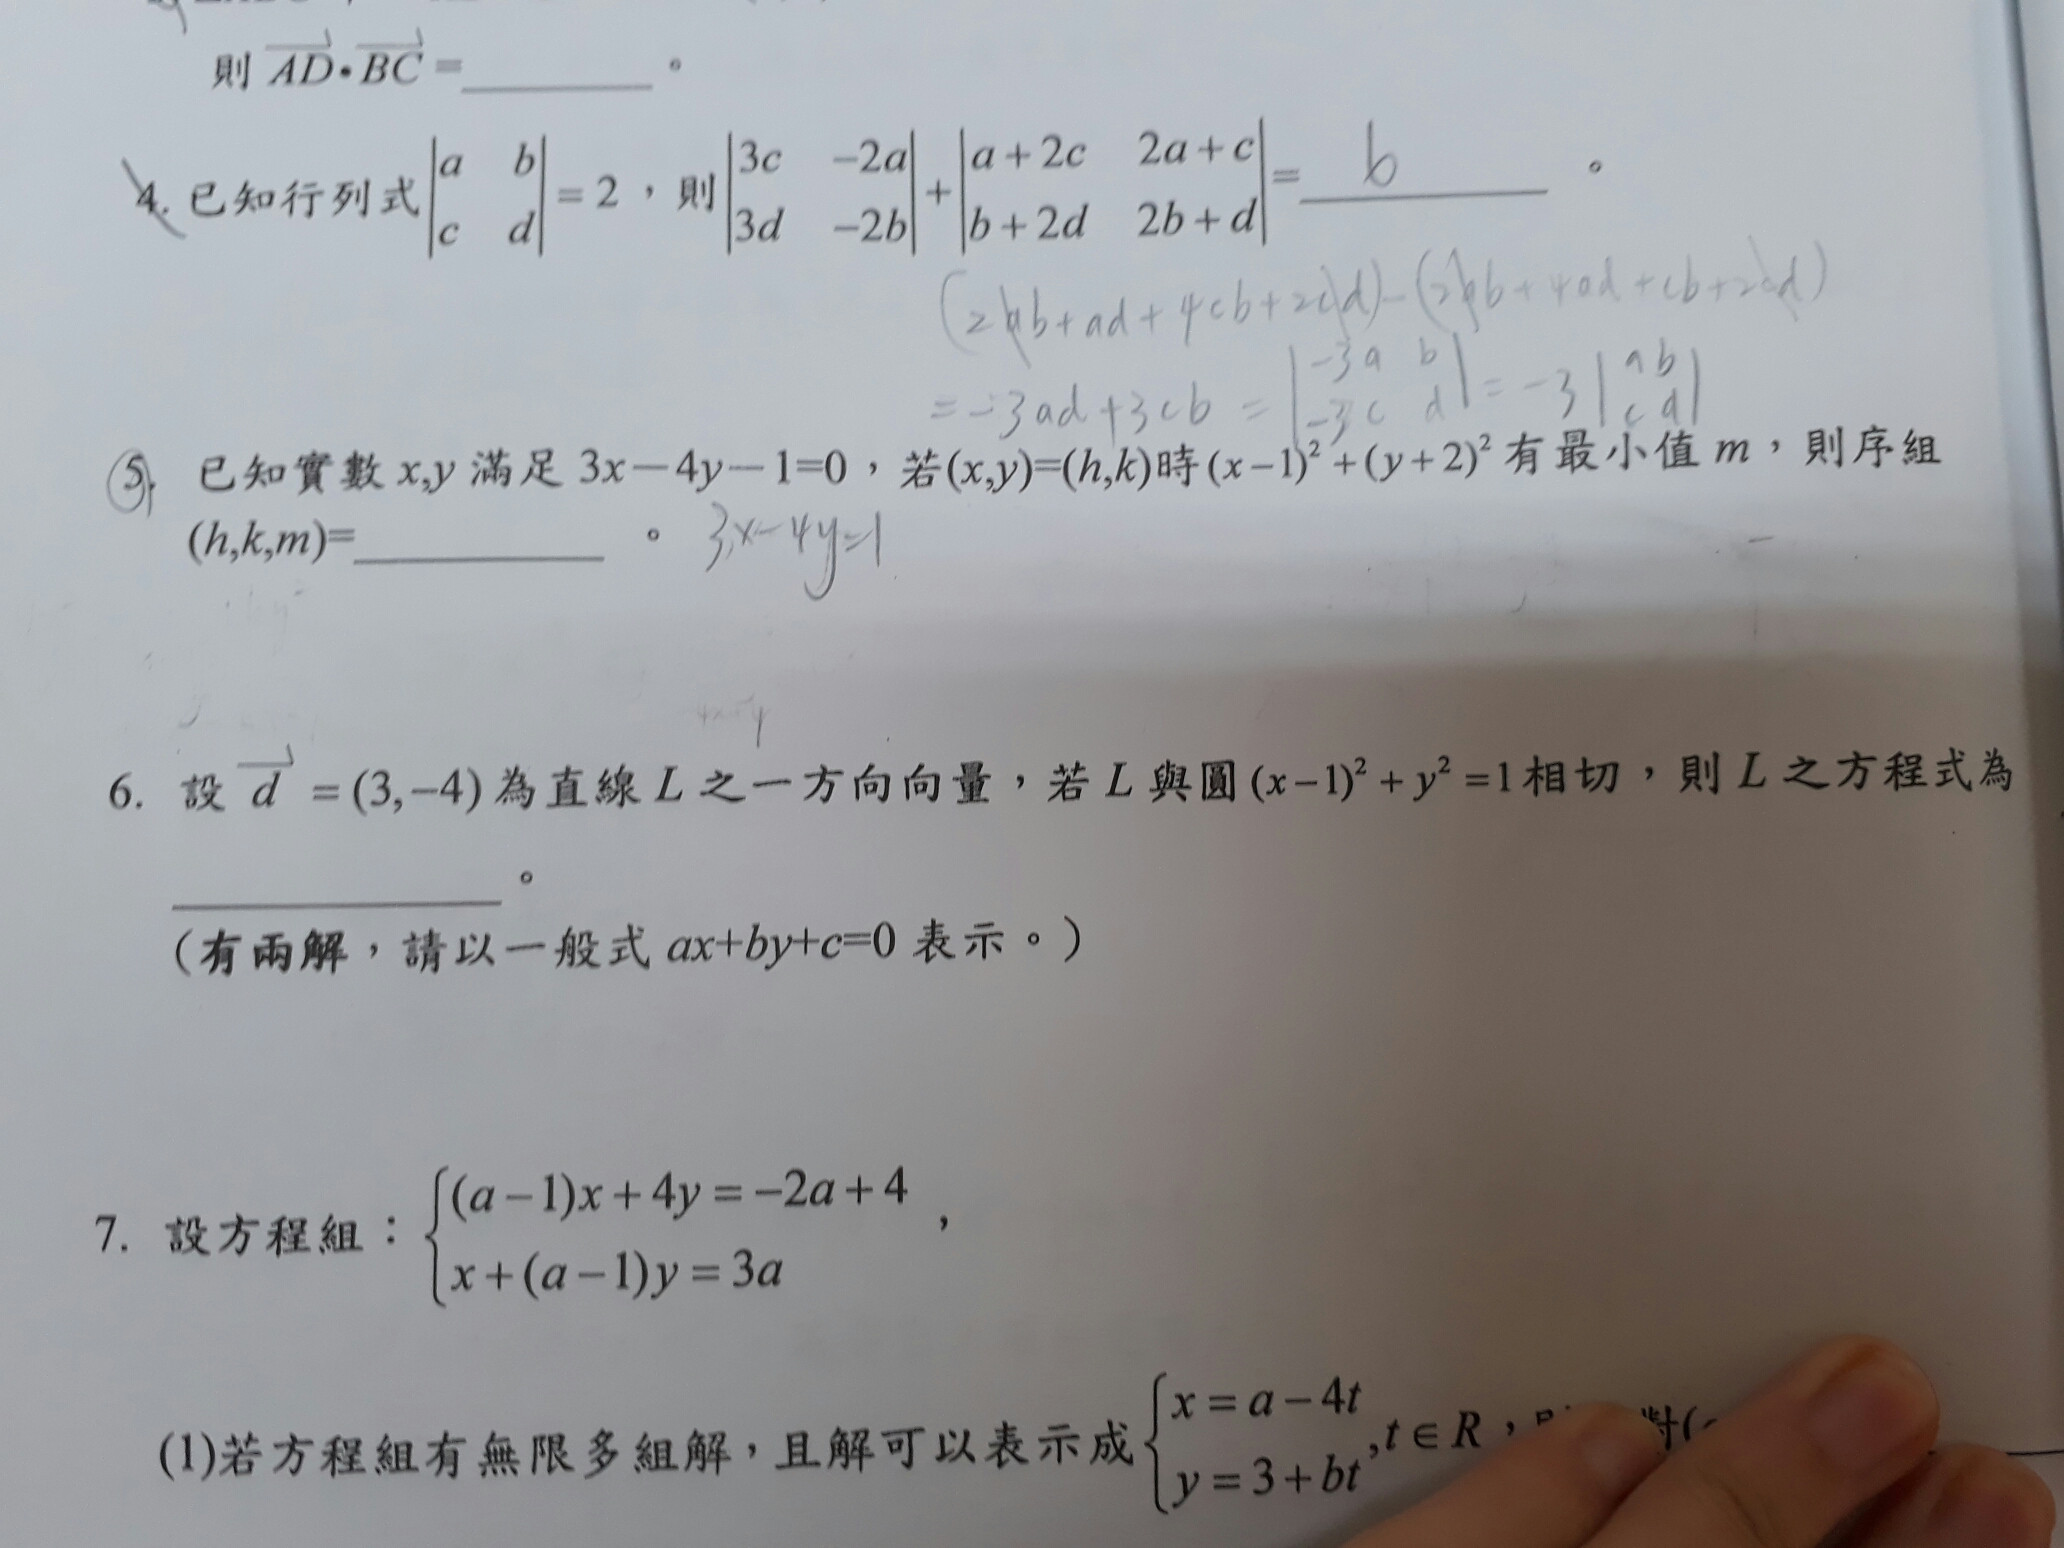 則 AD•BC = ______ 。
4. 已知行列式 |a b; c d| = 2，則 |3c −2a; 3d −2b| + |a+2c 2a+c; b+2d 2b+d| = 6 。
(2ab+ad+4cb+2cd)−(2ab+4ad+cb+2cd)
=−3ad+3cb = |−3a b; −3c d| = −3|a b; c d|
5. 已知實數 x,y 滿足 3x−4y−1=0，若(x,y)=(h,k)時(x−1)²+(y+2)²有最小值 m，則序組
(h,k,m)=______ 。 3x−4y=1
6. 設 d = (3,−4)為直線 L 之一方向向量，若 L 與圓(x−1)²+y²=1相切，則 L 之方程式為
______ 。
(有兩解，請以一般式 ax+by+c=0 表示。)
7. 設方程組：{(a−1)x+4y=−2a+4
x+(a−1)y=3a ，
(1)若方程組有無限多組解，且解可以表示成{x=a−4t
y=3+bt ,t∈R， 對(